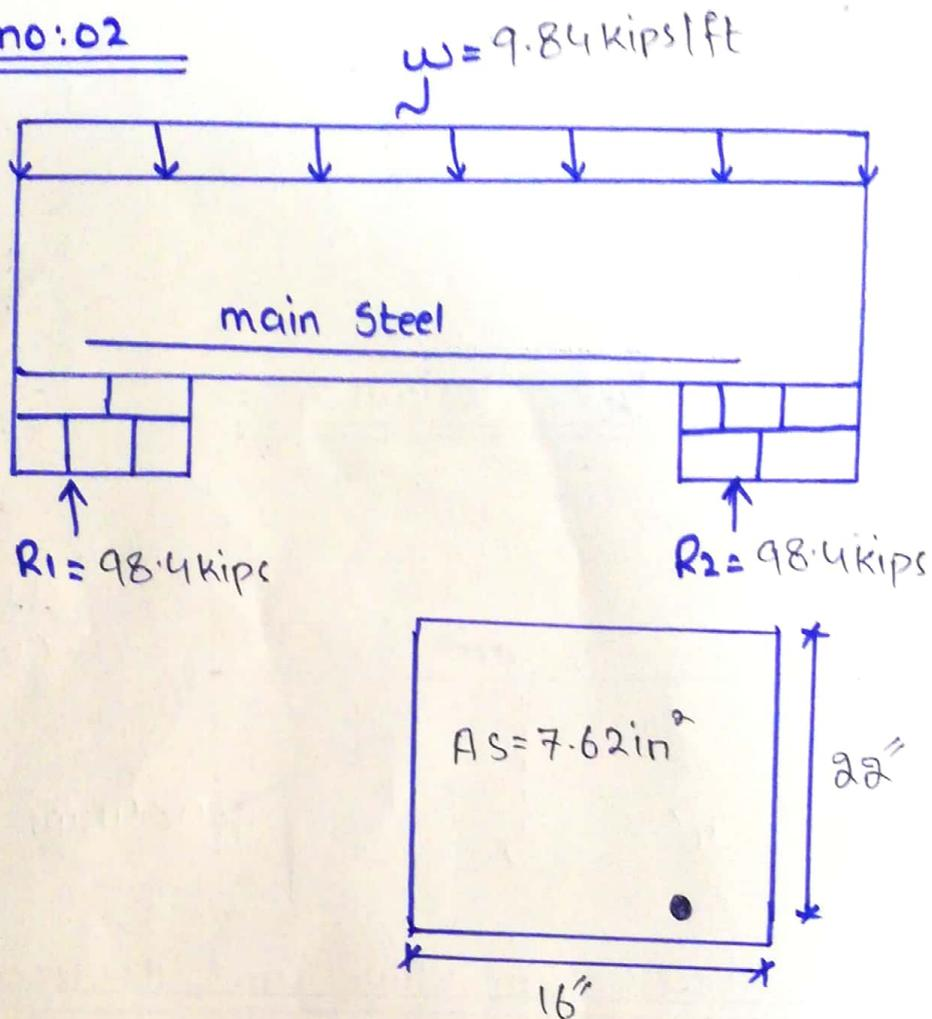 no:02
w = 9.84 kips/ft
main Steel
R1 = 98.4 kips
R2 = 98.4 kips
As = 7.62 in²
22"
16"